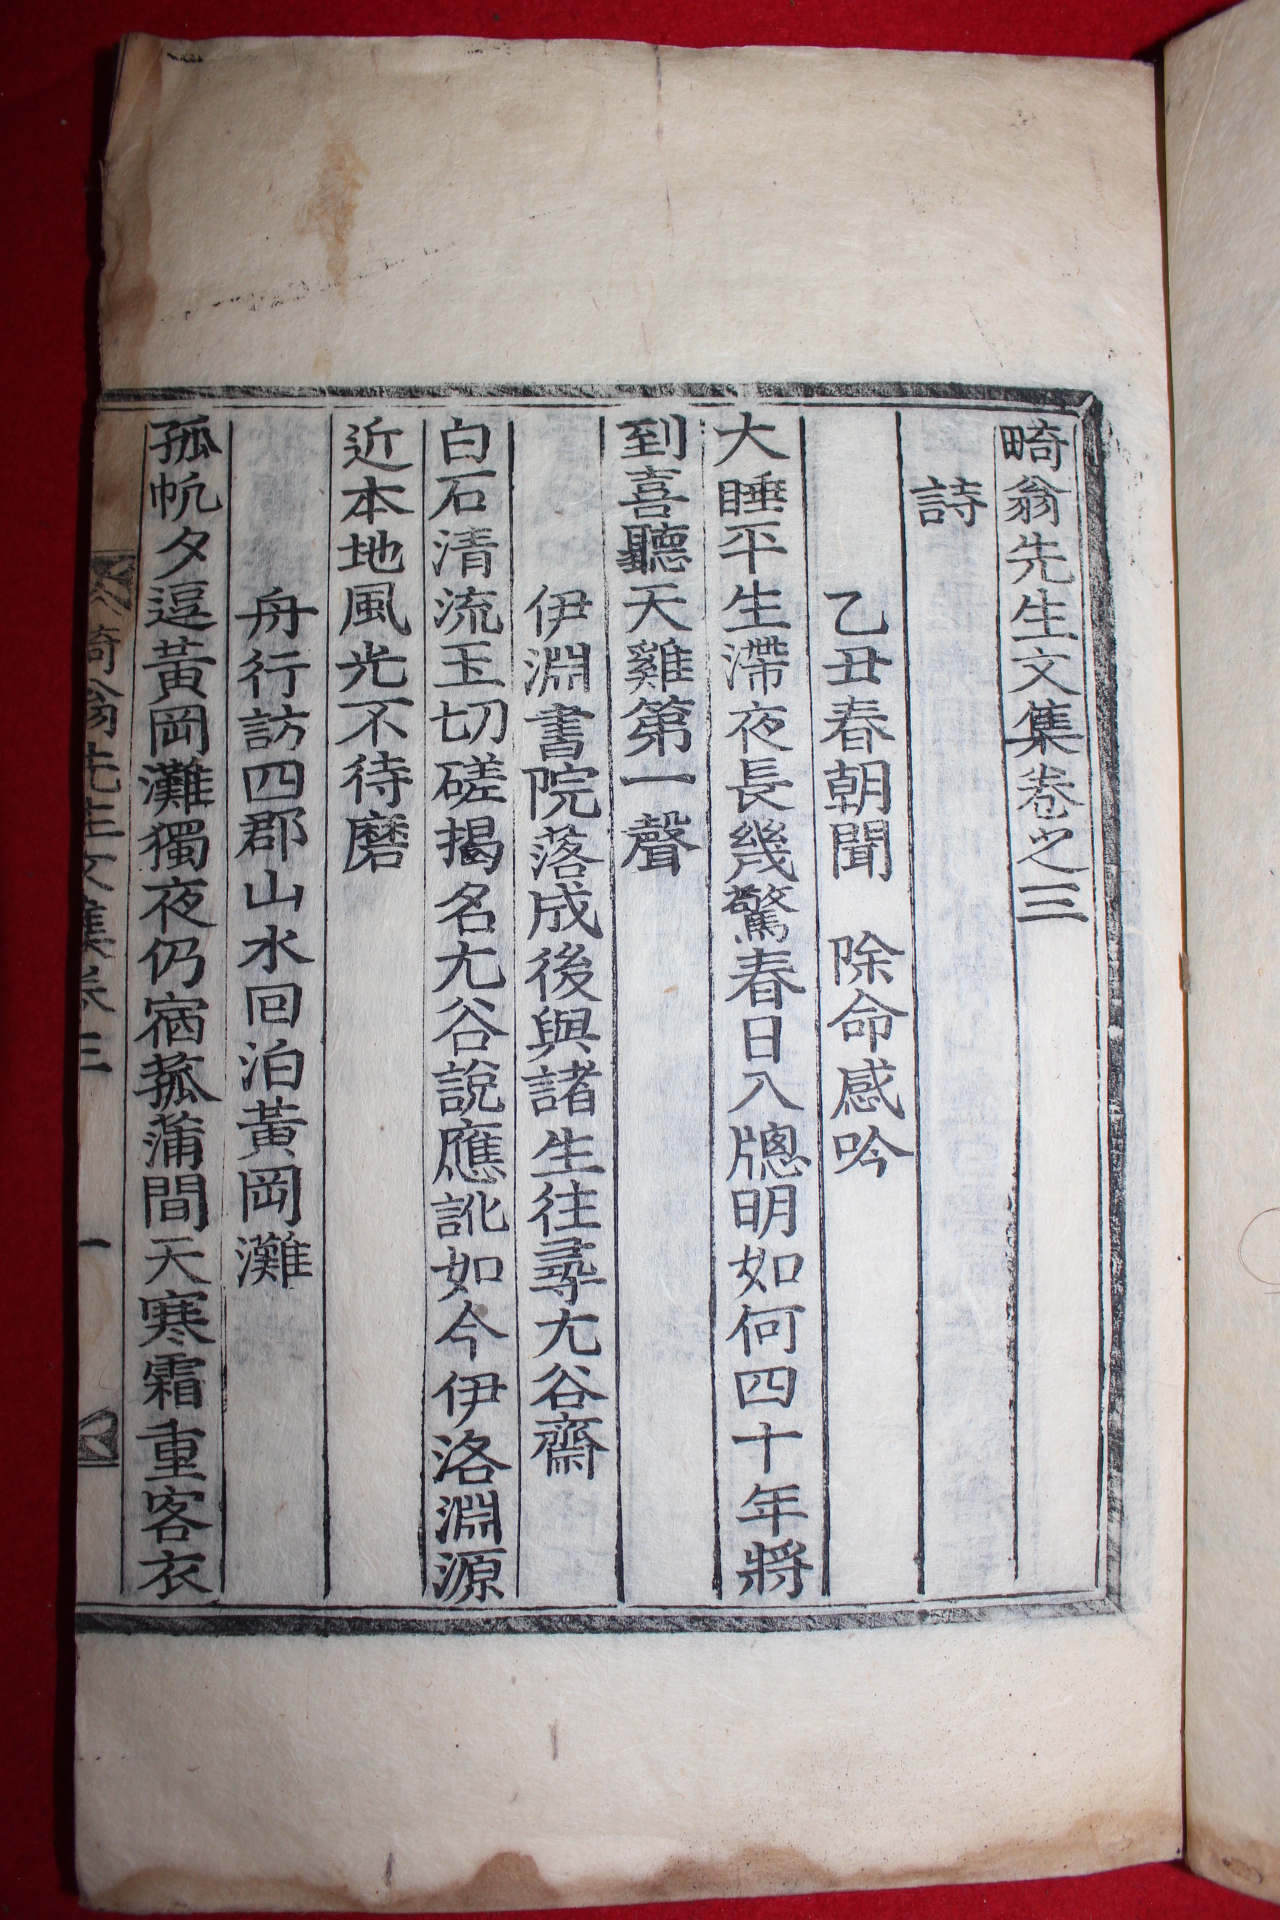 畸翁先生文集卷之三
詩
乙丑春朝聞 除命感吟
大睡平生滯夜長幾驚春日入牕明如何四十年將
到喜聽天雞第一聲
伊淵書院落成後與諸生往尋尤谷齋
白石清流玉切磋揭名尤谷說應訛如今伊洛淵源
近本地風光不待磨
舟行訪四郡山水回泊黃岡灘
孤帆夕逗黃岡灘獨夜仍宿菰蒲間天寒霜重客衣
畸翁先生文集卷三 一